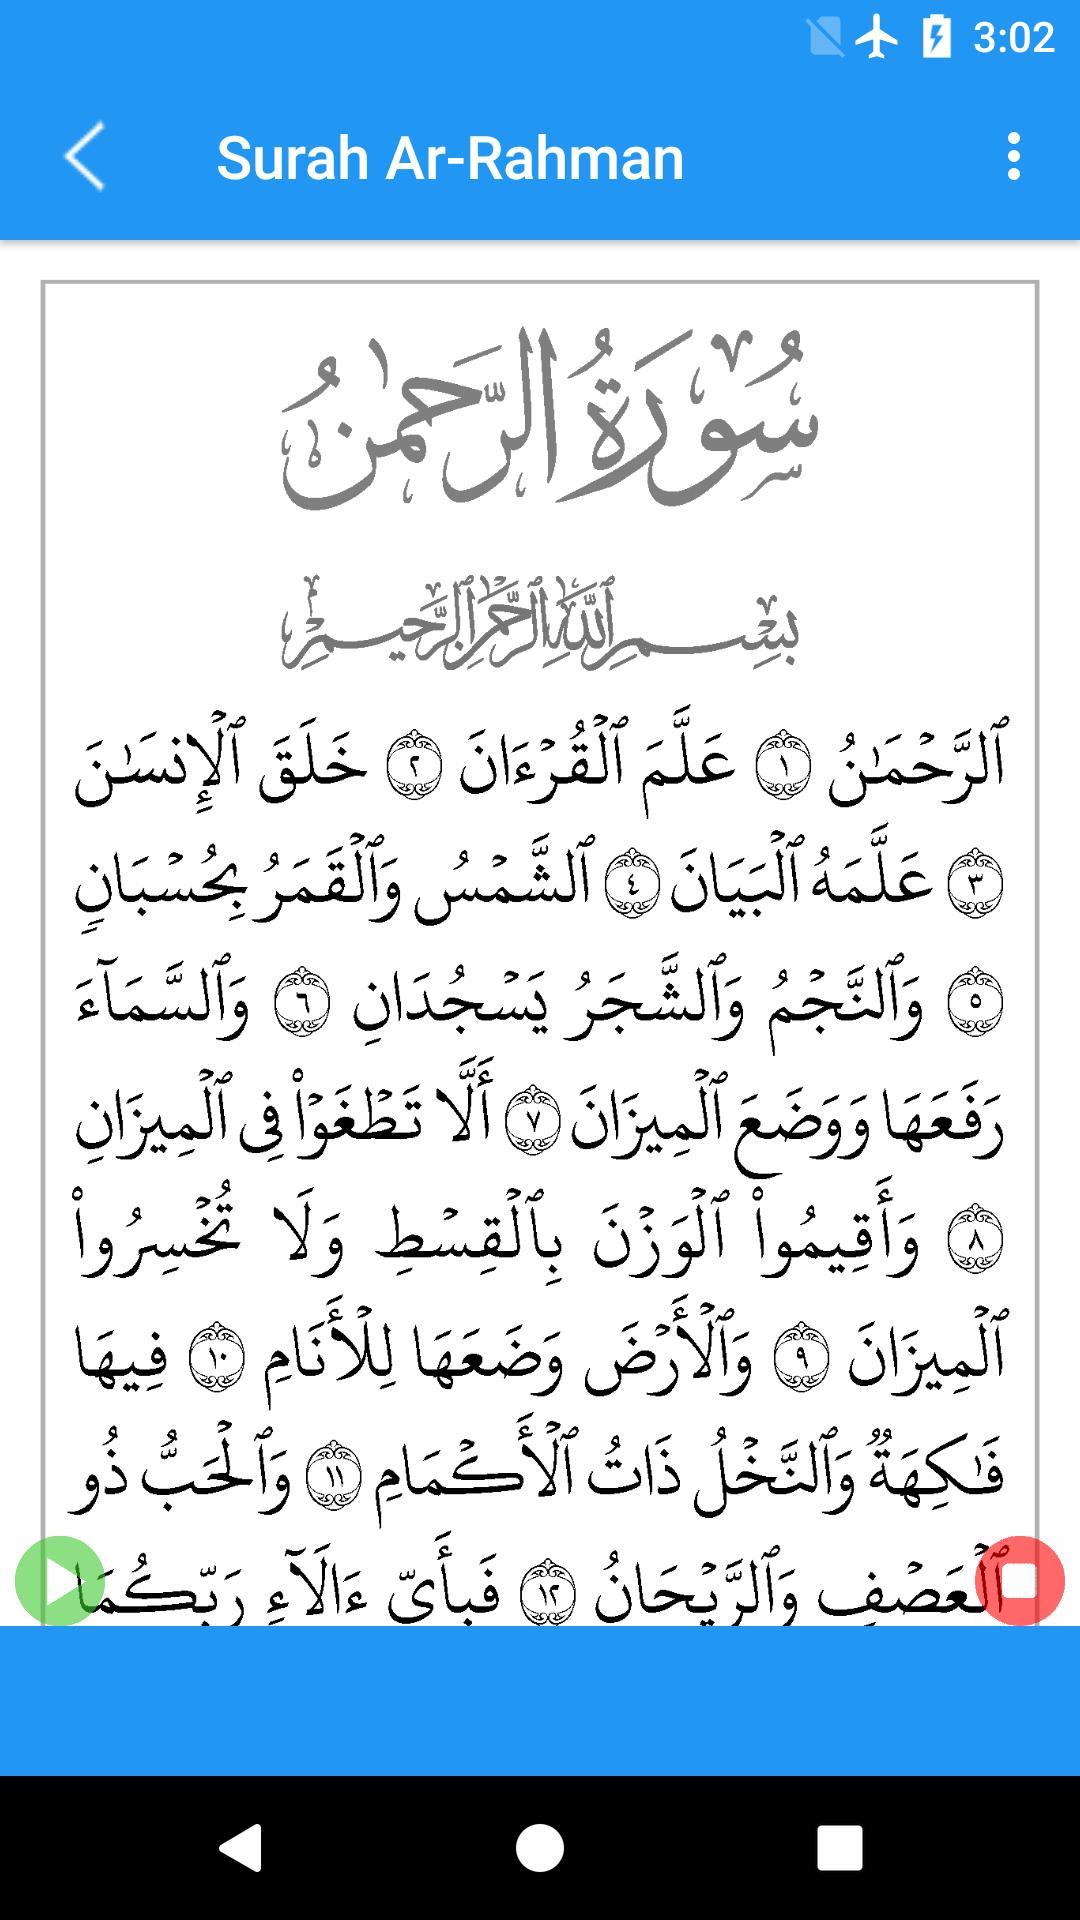 3:02
Surah Ar-Rahman
سُورَةُ الرَّحْمٰنِ
بِسْمِ ٱللَّهِ ٱلرَّحْمَٰنِ ٱلرَّحِيمِ
ٱلرَّحْمَـٰنُ ١ عَلَّمَ ٱلْقُرْءَانَ ٢ خَلَقَ ٱلْإِنسَـٰنَ
٣ عَلَّمَهُ ٱلْبَيَانَ ٤ ٱلشَّمْسُ وَٱلْقَمَرُ بِحُسْبَانٍ
٥ وَٱلنَّجْمُ وَٱلشَّجَرُ يَسْجُدَانِ ٦ وَٱلسَّمَآءَ
رَفَعَهَا وَوَضَعَ ٱلْمِيزَانَ ٧ أَلَّا تَطْغَوْا۟ فِى ٱلْمِيزَانِ
٨ وَأَقِيمُوا۟ ٱلْوَزْنَ بِٱلْقِسْطِ وَلَا تُخْسِرُوا۟
ٱلْمِيزَانَ ٩ وَٱلْأَرْضَ وَضَعَهَا لِلْأَنَامِ ١٠ فِيهَا
فَـٰكِهَةٌ وَٱلنَّخْلُ ذَاتُ ٱلْأَكْمَامِ ١١ وَٱلْحَبُّ ذُو
ٱلْعَصْفِ وَٱلرَّيْحَانُ ١٢ فَبِأَىِّ ءَالَآءِ رَبِّكُمَا